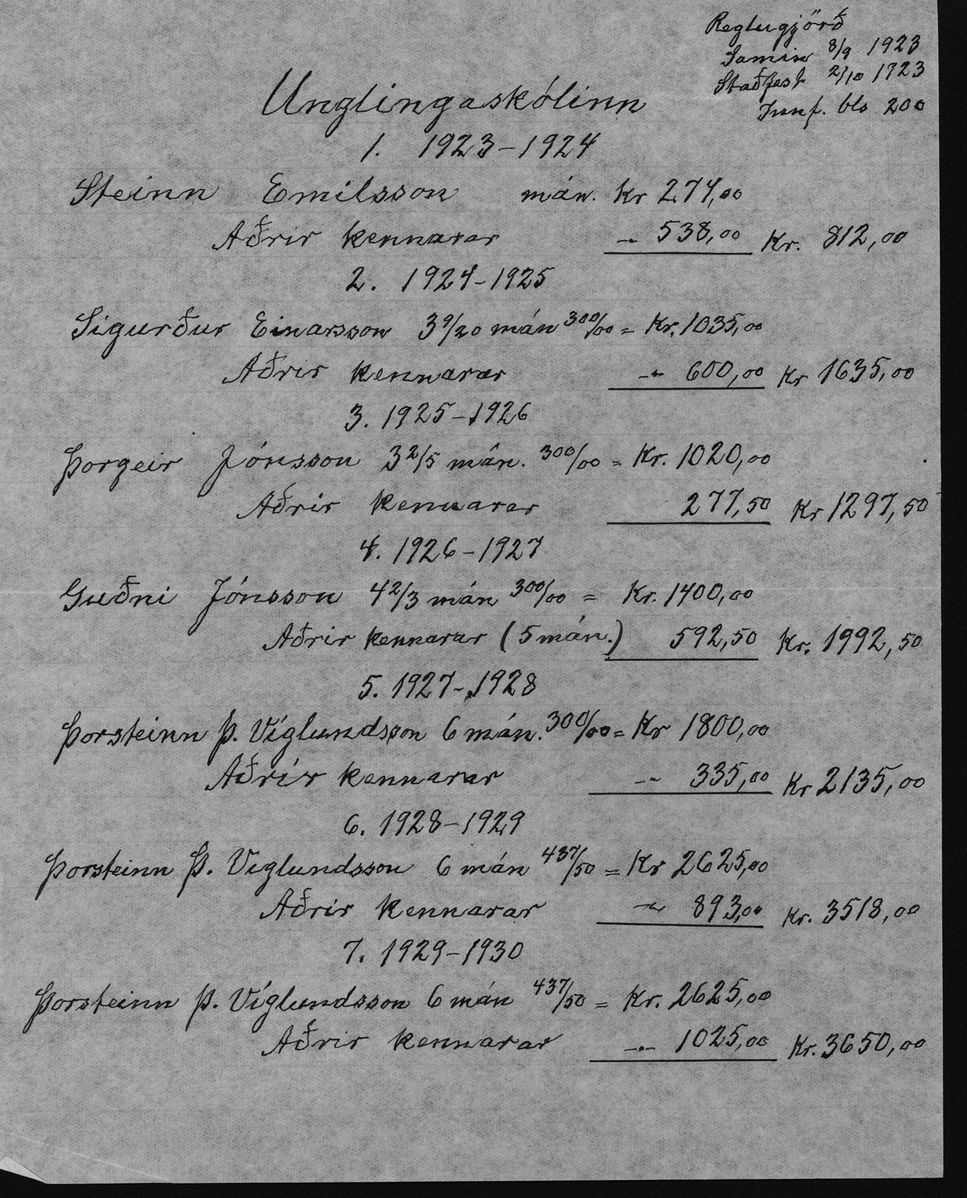 Reglugjörð
Samin 8/9 1923
Staðfest 2/10 1923
Innf. bls 200
Unglingaskólinn
1. 1923-1924
Steinn Emilsson mán. Kr 274,00
Aðrir kennarar -"- 538,00 Kr. 812,00
2. 1924-1925
Sigurður Einarsson 3 9/20 mán 300/00 = Kr. 1035,00
Aðrir kennarar -"- 600,00 Kr 1635,00
3. 1925-1926
Þorgeir Jónsson 3 2/5 mán. 300/00 = Kr. 1020,00
Aðrir kennarar 277,50 Kr 1297,50
4. 1926-1927
Guðni Jónsson 4 2/3 mán 300/00 = Kr. 1400,00
Aðrir kennarar (5 mán.) 592,50 Kr. 1992,50
5. 1927-1928
Þorsteinn Þ. Víglundsson 6 mán. 300/00 = Kr 1800,00
Aðrir kennarar -"- 335,00 Kr 2135,00
6. 1928-1929
Þorsteinn Þ. Víglundsson 6 mán 437/50 = Kr 2625,00
Aðrir kennarar -"- 893,00 Kr. 3518,00
7. 1929-1930
Þorsteinn Þ. Víglundsson 6 mán 437/50 = Kr. 2625,00
Aðrir kennarar -"- 1025,00 Kr. 3650,00